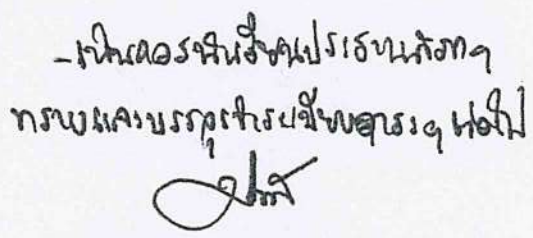 - เห็นควรนำเรียนประธานสภาฯ
ทราบและบรรจุเข้าระเบียบวาระฯ ต่อไป